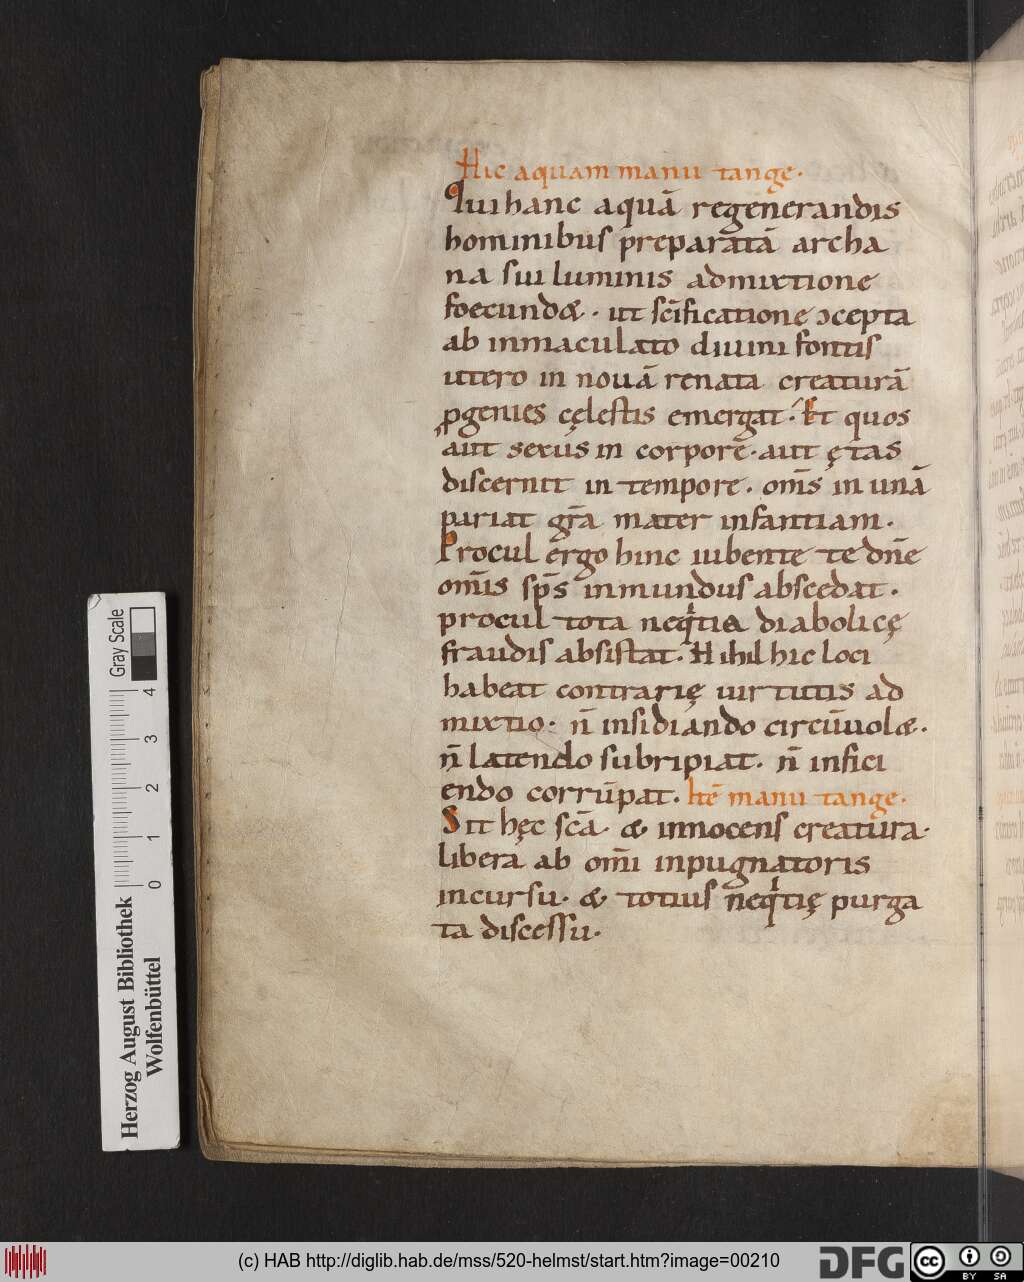 Hic aquam manu tange·
Qui hanc aquā regenerandis
hominibus preparatā archa
na sui luminis admixtione
foecund&· ut sc̄ificatione ɔcepta
ab inmaculato diuini fontis
utero in nouā renata creaturā
ꝓgenies cęlestis emergat· Et quos
aut sexus in corpore· aut ętas
discernit in tempore· om̄s in unā
pariat gr̄a mater infantiam·
Procul ergo hinc iubente te dn̄e
om̄is sp̄s inmundus abscedat·
procul tota neqͥtia diabolicę
fraudis absistat· Nihil hic loci
habeat contrarię uirtutis ad
mixtio· n̄ insidiando circūuol&·
n̄ latendo subripiat· n̄ infici
endo corrūpat· Itē manu tange·
Sit hęc sc̄a· & innocens creatura·
libera ab om̄i inpugnatoris
incursu· & totius neqͥtię purga
ta discessu·
Gray Scale
4 3 2 1 0
Herzog August Bibliothek
Wolfenbüttel
(c) HAB http://diglib.hab.de/mss/520-helmst/start.htm?image=00210
DFG
cc BY SA